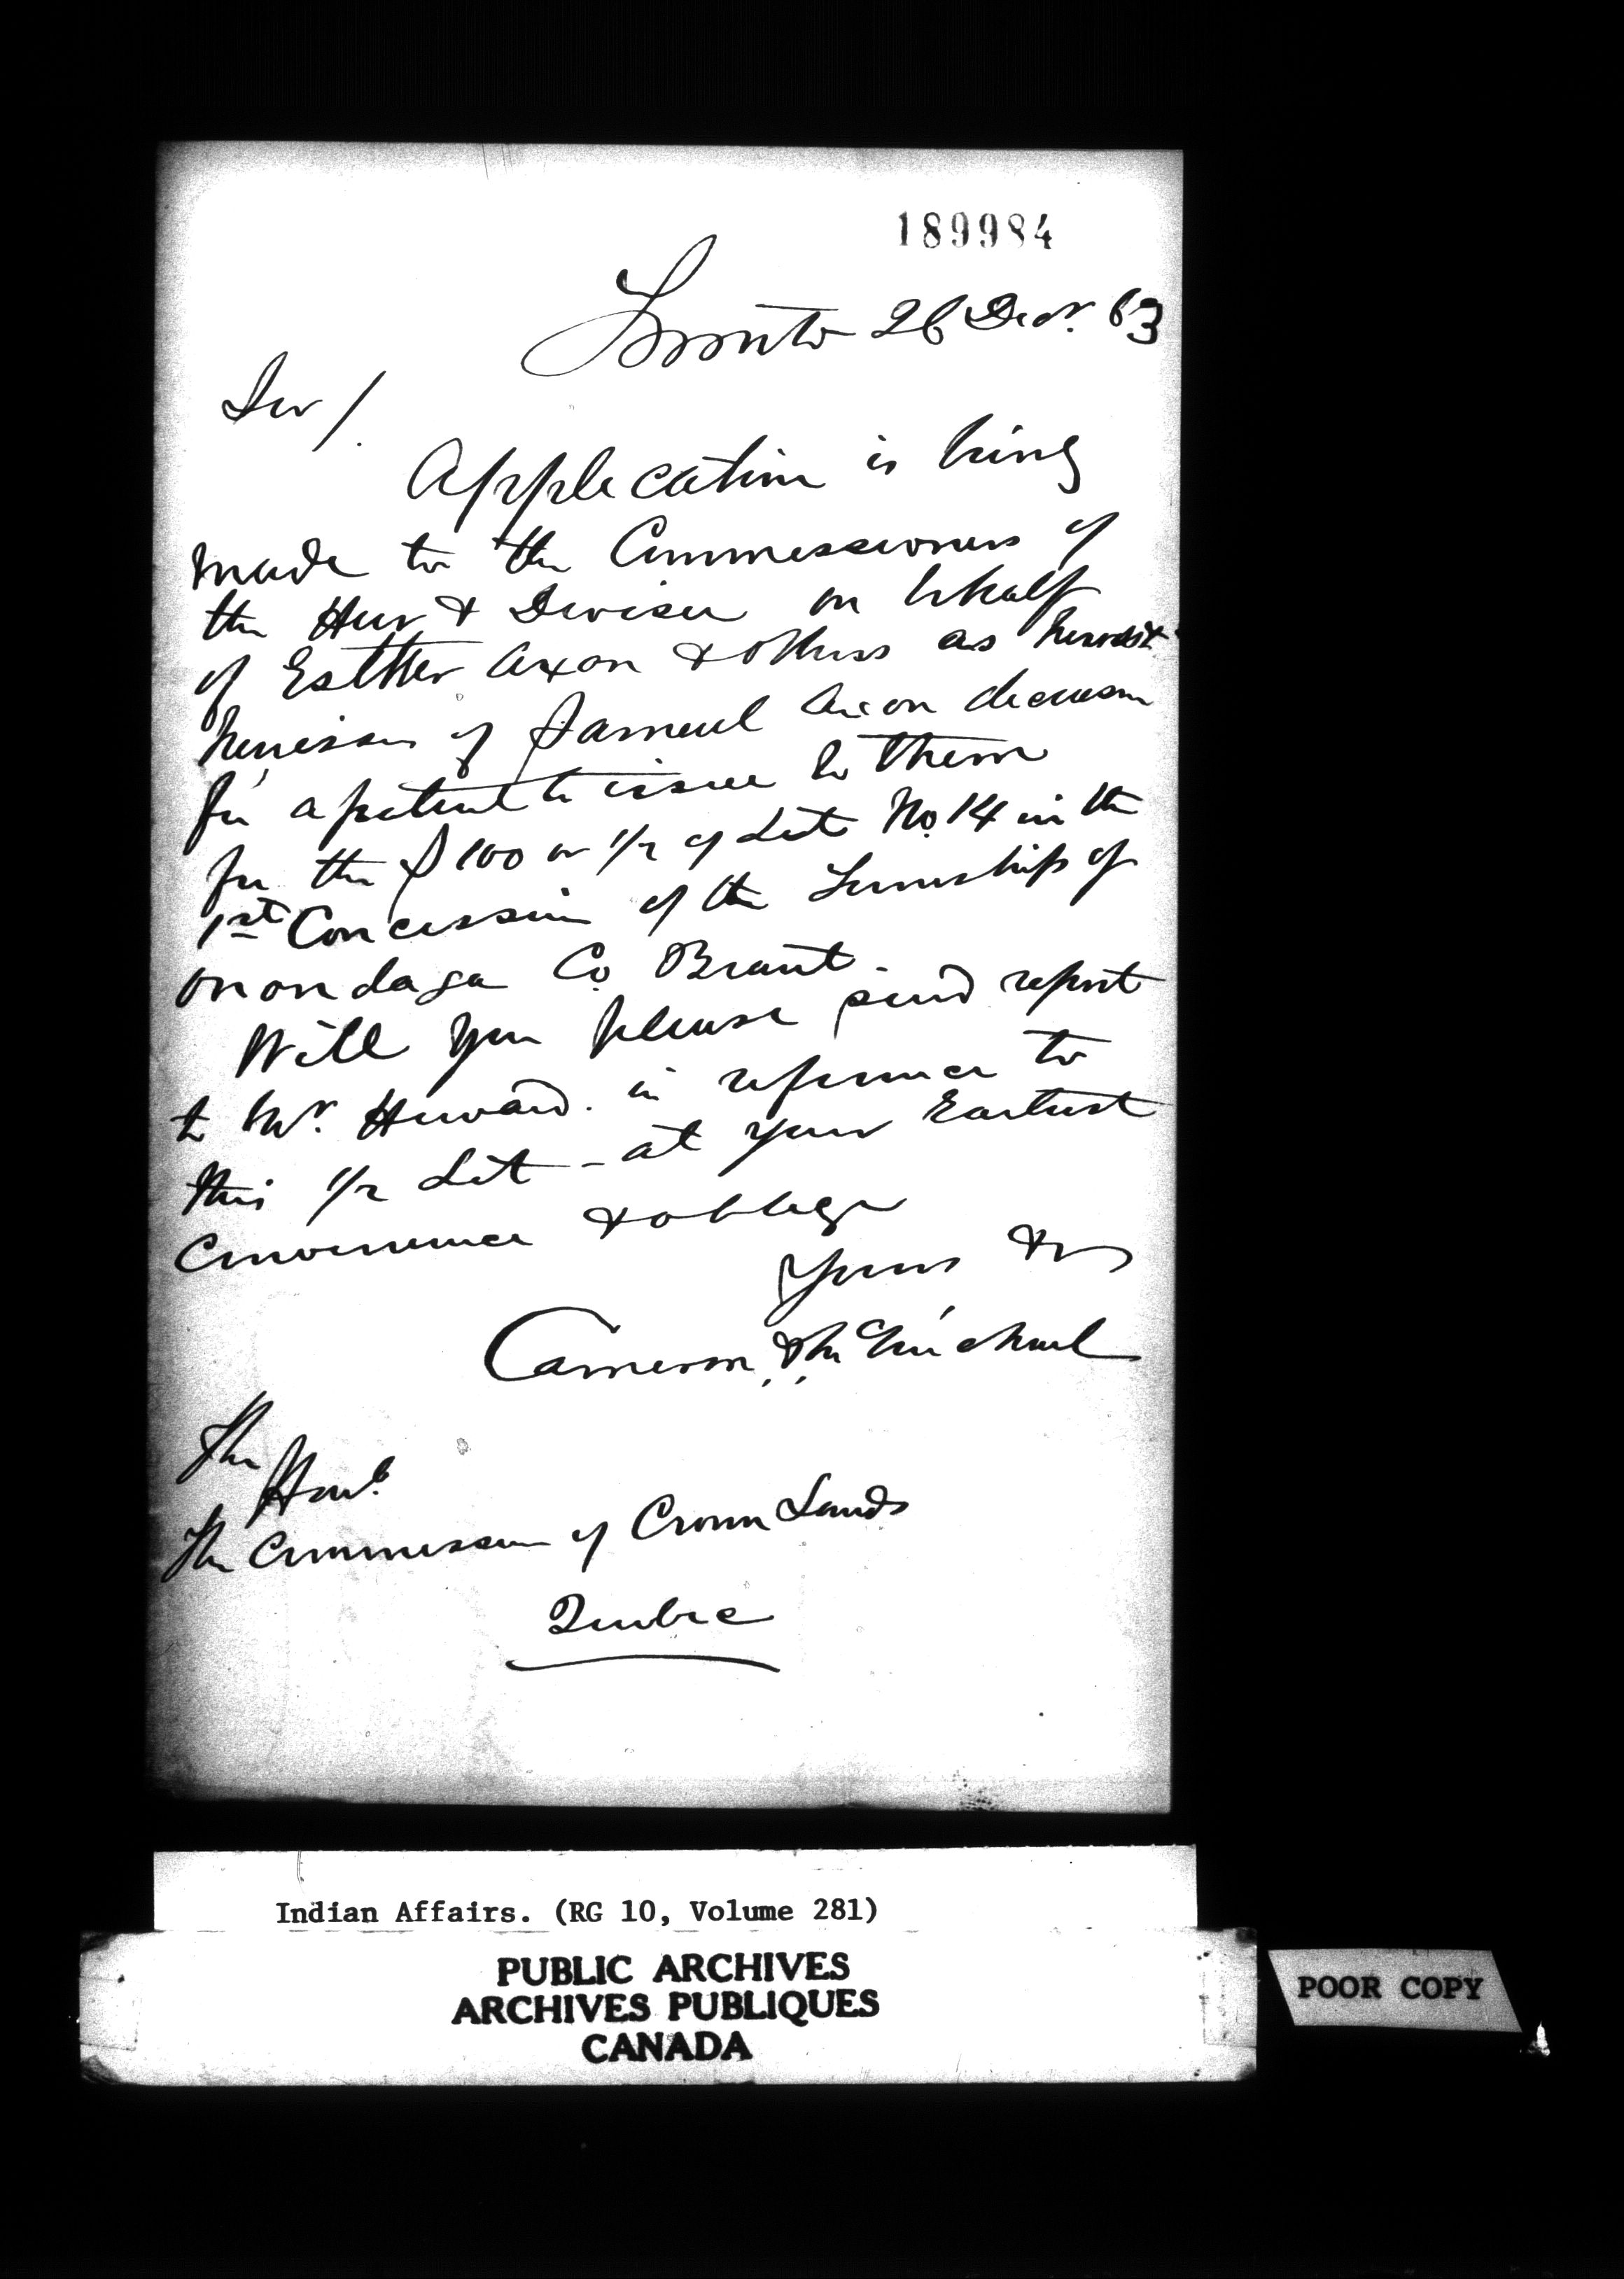 189984
Toronto 26 Decr. 63
Sir /.
Application is being
made to the Commissioners of
the Heir & Devisee on behalf
of Esther Axon & others as
of Samuel Axon deceased
for a patent to issue to them
for the S 100 or 1/2 of Lot No. 14 in the
1st Concession of the Township of
Onondaga Co Brant -
Will you please send report
to Mr. Heward. in reference to
this 1/2 Lot - at your Earliest
Convenience & oblige
Yours &c
Cameron & McMichael
The
Honb.
The Commissioner of Crown Lands
Quebec
Indian Affairs. (RG 10, Volume 281)
PUBLIC ARCHIVES
ARCHIVES PUBLIQUES
CANADA
POOR COPY